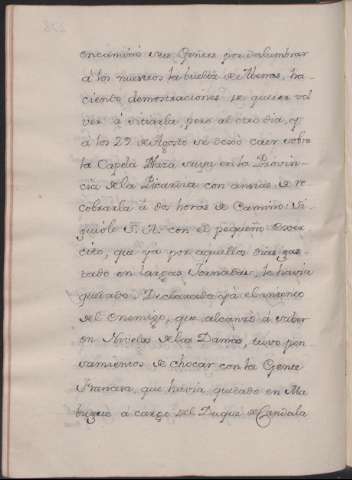 encaminó sus Gentes por deslumbrar
á los nuestros la buelta de Mons, ha-
ciendo demostraciones de querer vol
ver á sitiarla, pero al otro dia, q
á los 29 de Agosto se dexó caer sobre
la Capela Plaza suya en la Provin-
cia de la Picardia con ansias de re
cobrarla á dos horas de Camino. Si
guiole S. A. con el pequeño Exer-
cito, que ya por aquellos dias gas
tado en largas Jornadas, le havia
quedado. Declarado yá el intento
del Enemigo, que alcanzó á saber
en Nivelas de las Damas, tuvo pen
samientos de chocar con la Gente
Francesa, que havia quedado en Ma
buzue á cargo del Duque de Candala